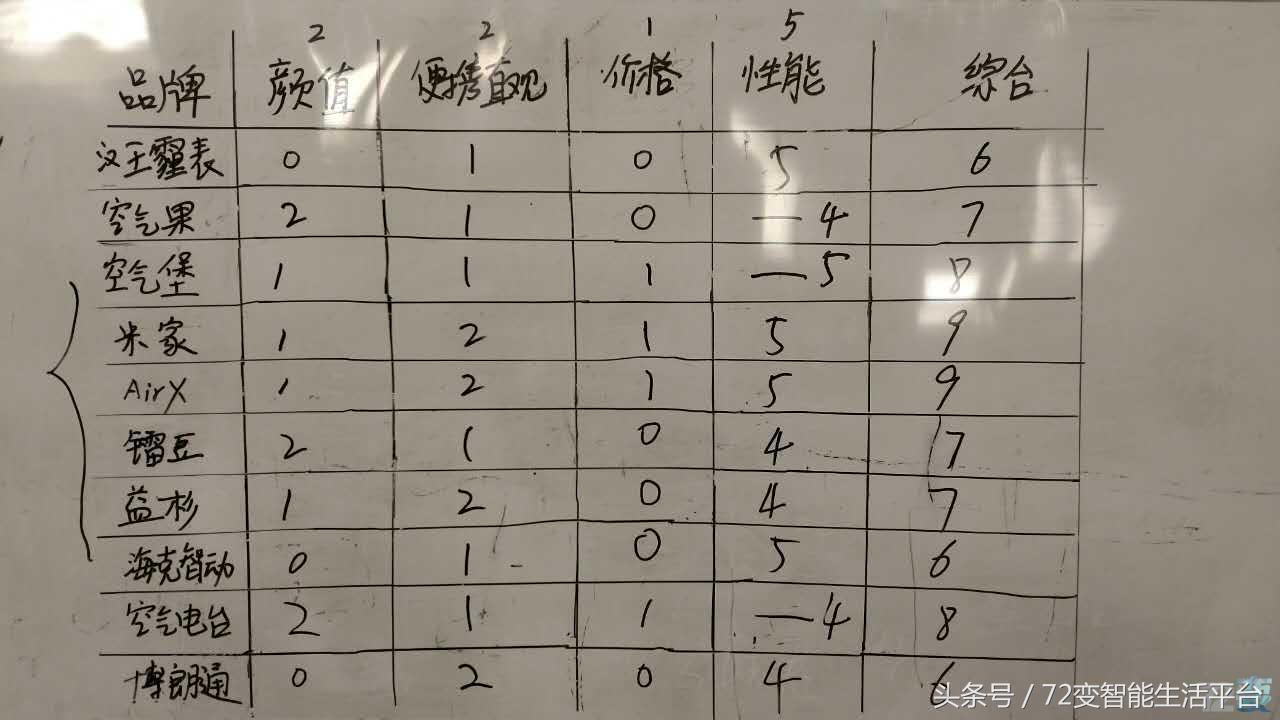 2 2 1 5
品牌 颜值 便携直观 价格 性能 综合
汉王霾表 0 1 0 5 6
空气果 2 1 0 —4 7
空气堡 1 1 1 —5 8
米家 1 2 1 5 9
AirX 1 2 1 5 9
镭豆 2 1 0 4 7
益杉 1 2 0 4 7
海克智动 0 1 0 5 6
空气电台 2 1 1 —4 8
博朗通 0 2 0 4 6
头条号 / 72变智能生活平台